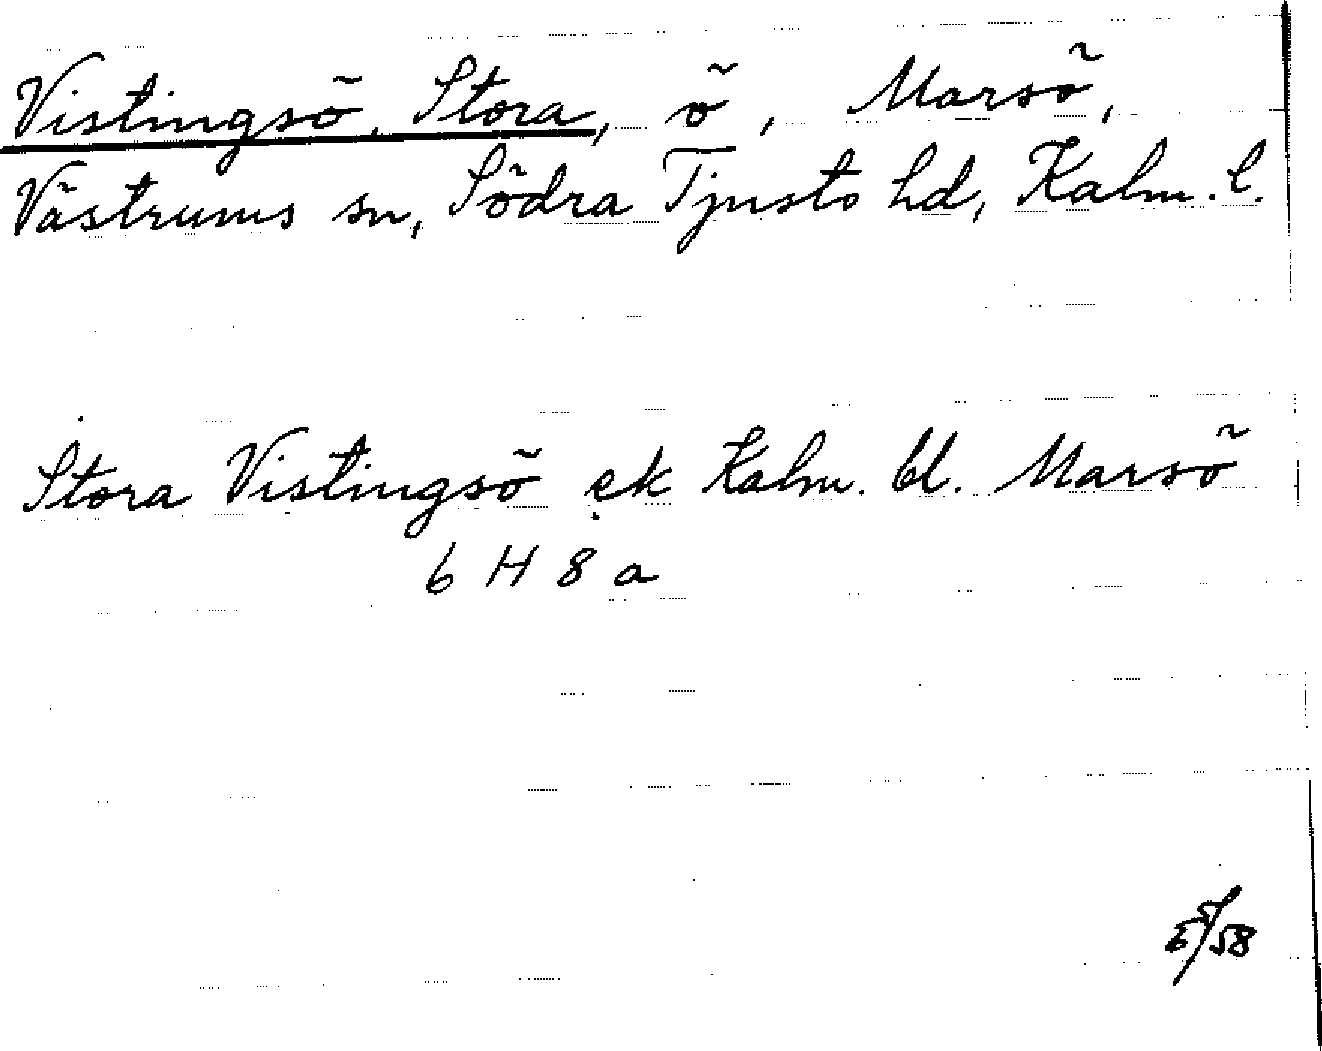 Vistingsö, Stora, ö, Marsö,
Västrums sn, Södra Tjusts hd, Kalm. l.
Stora Vistingsö ek Kalm. bl. Marsö
6 H 8 a